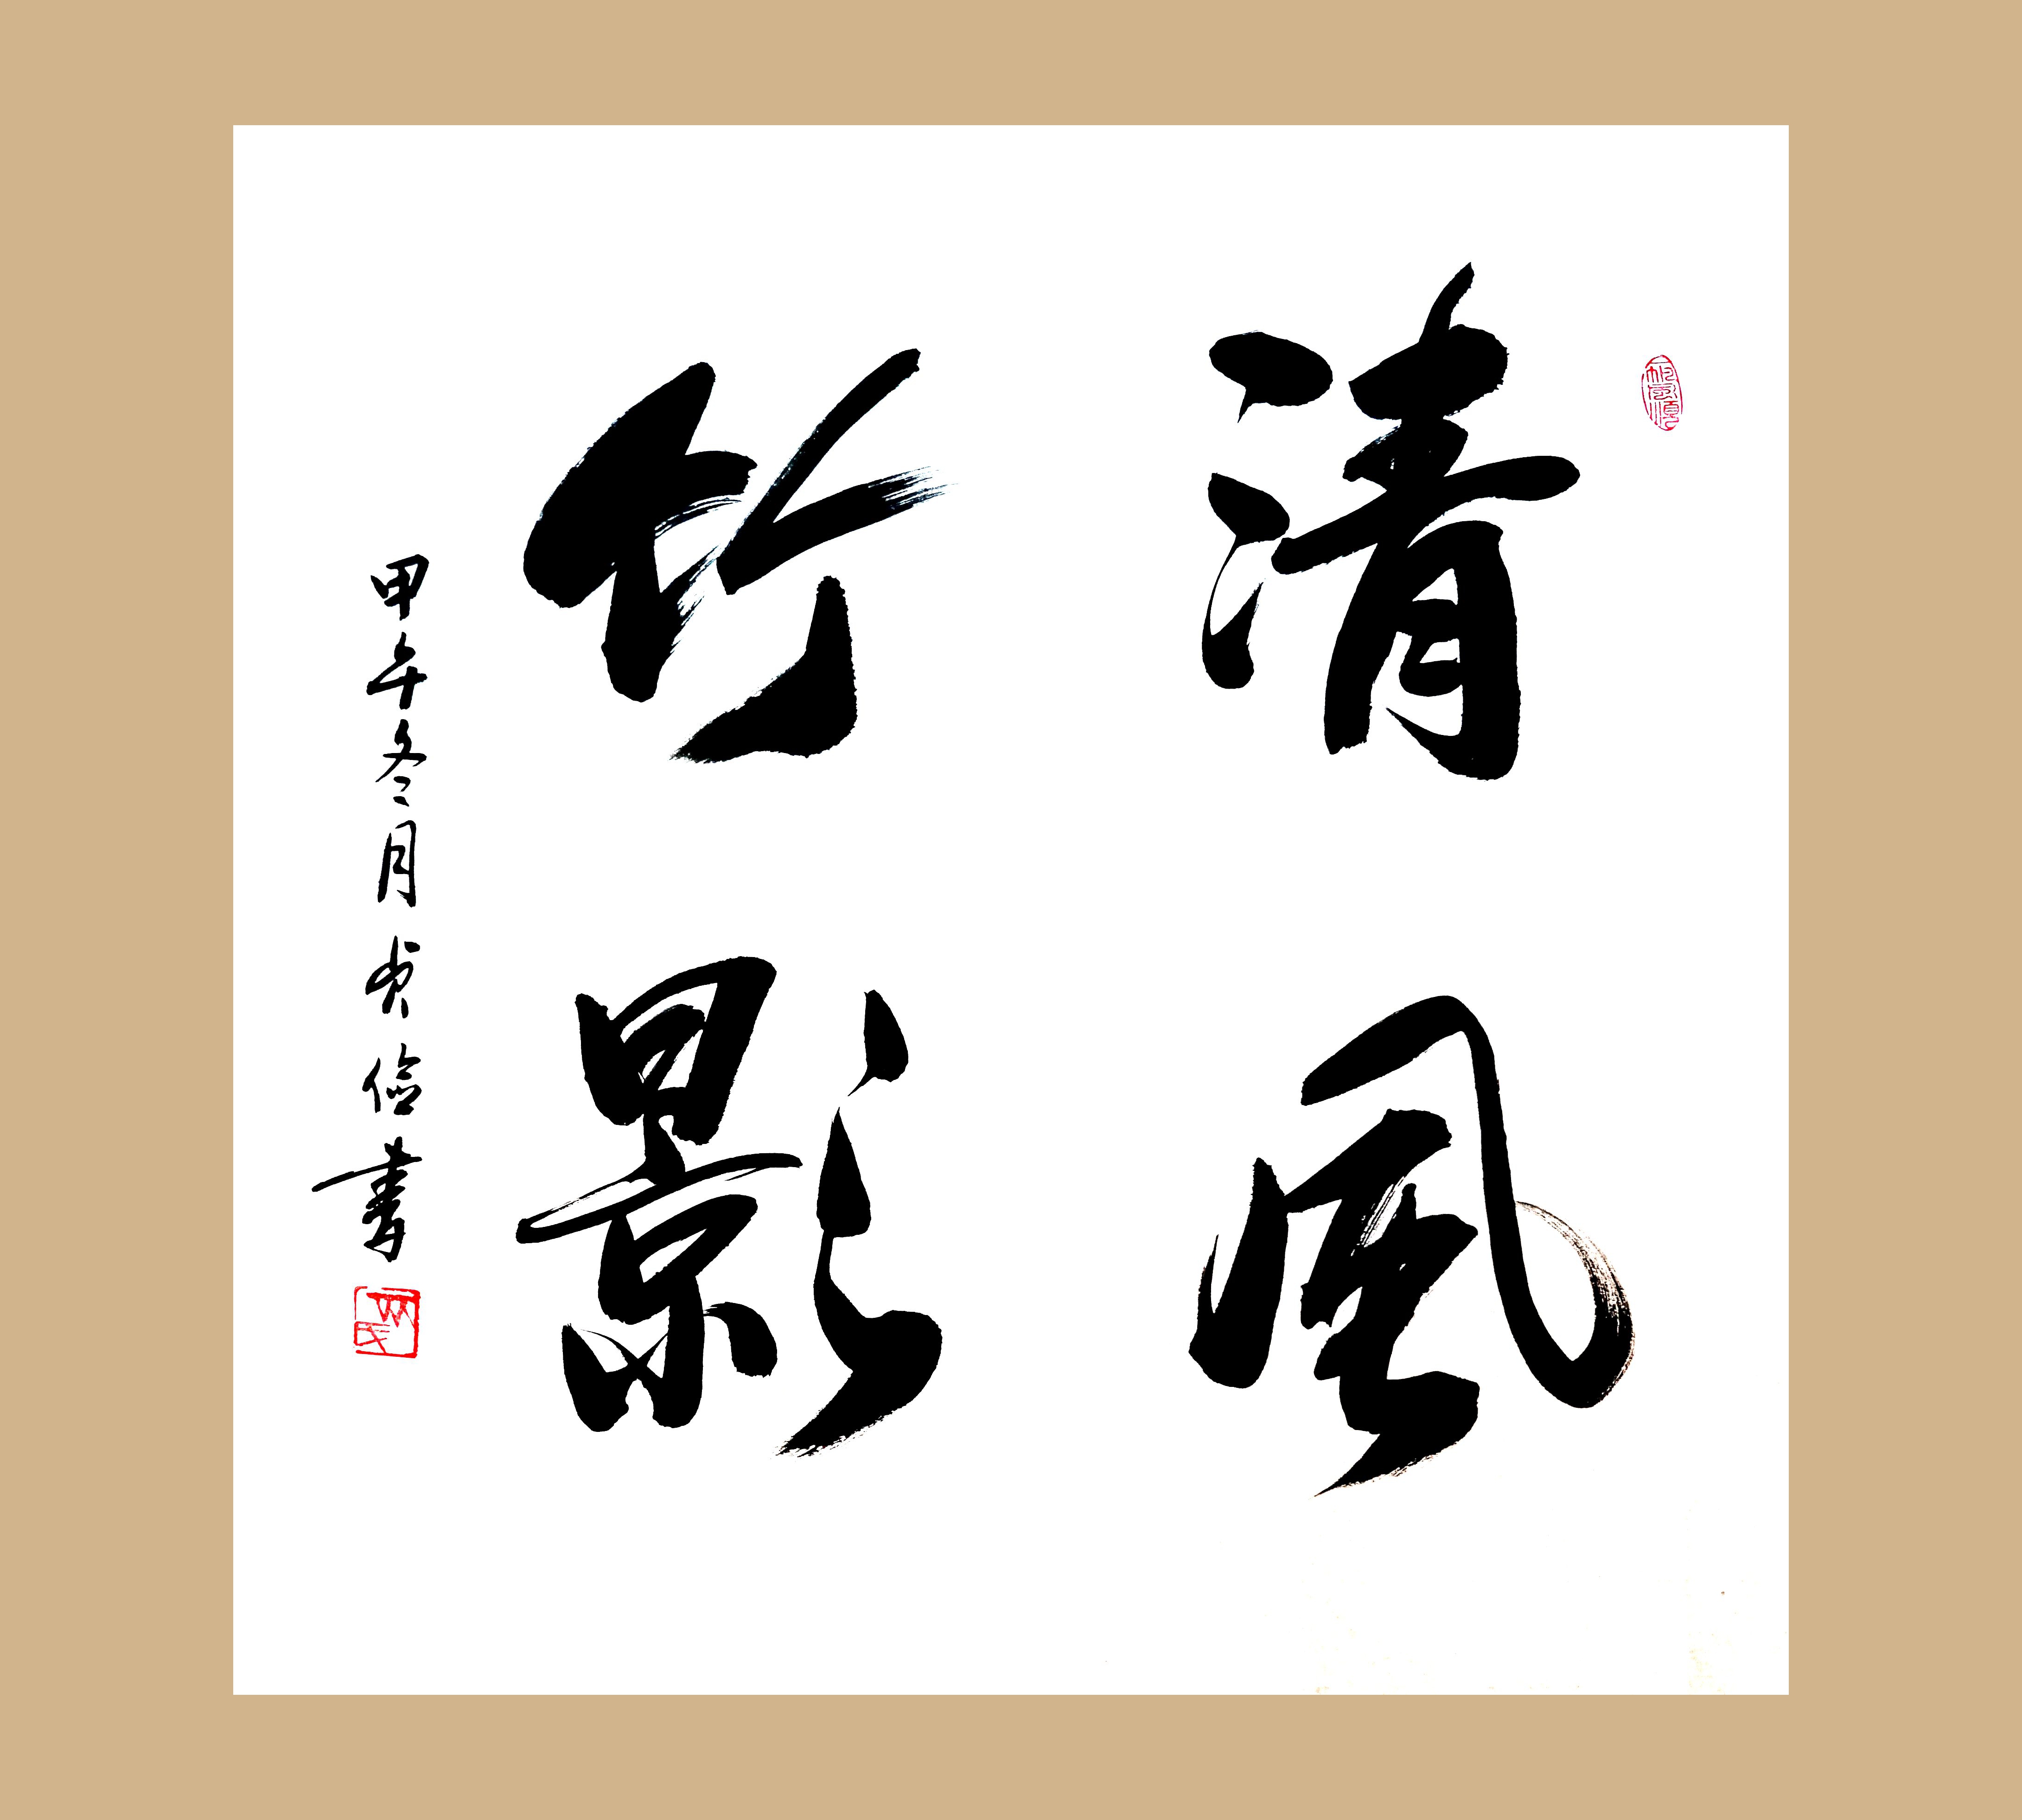 清風
竹影
甲午冬月 信書